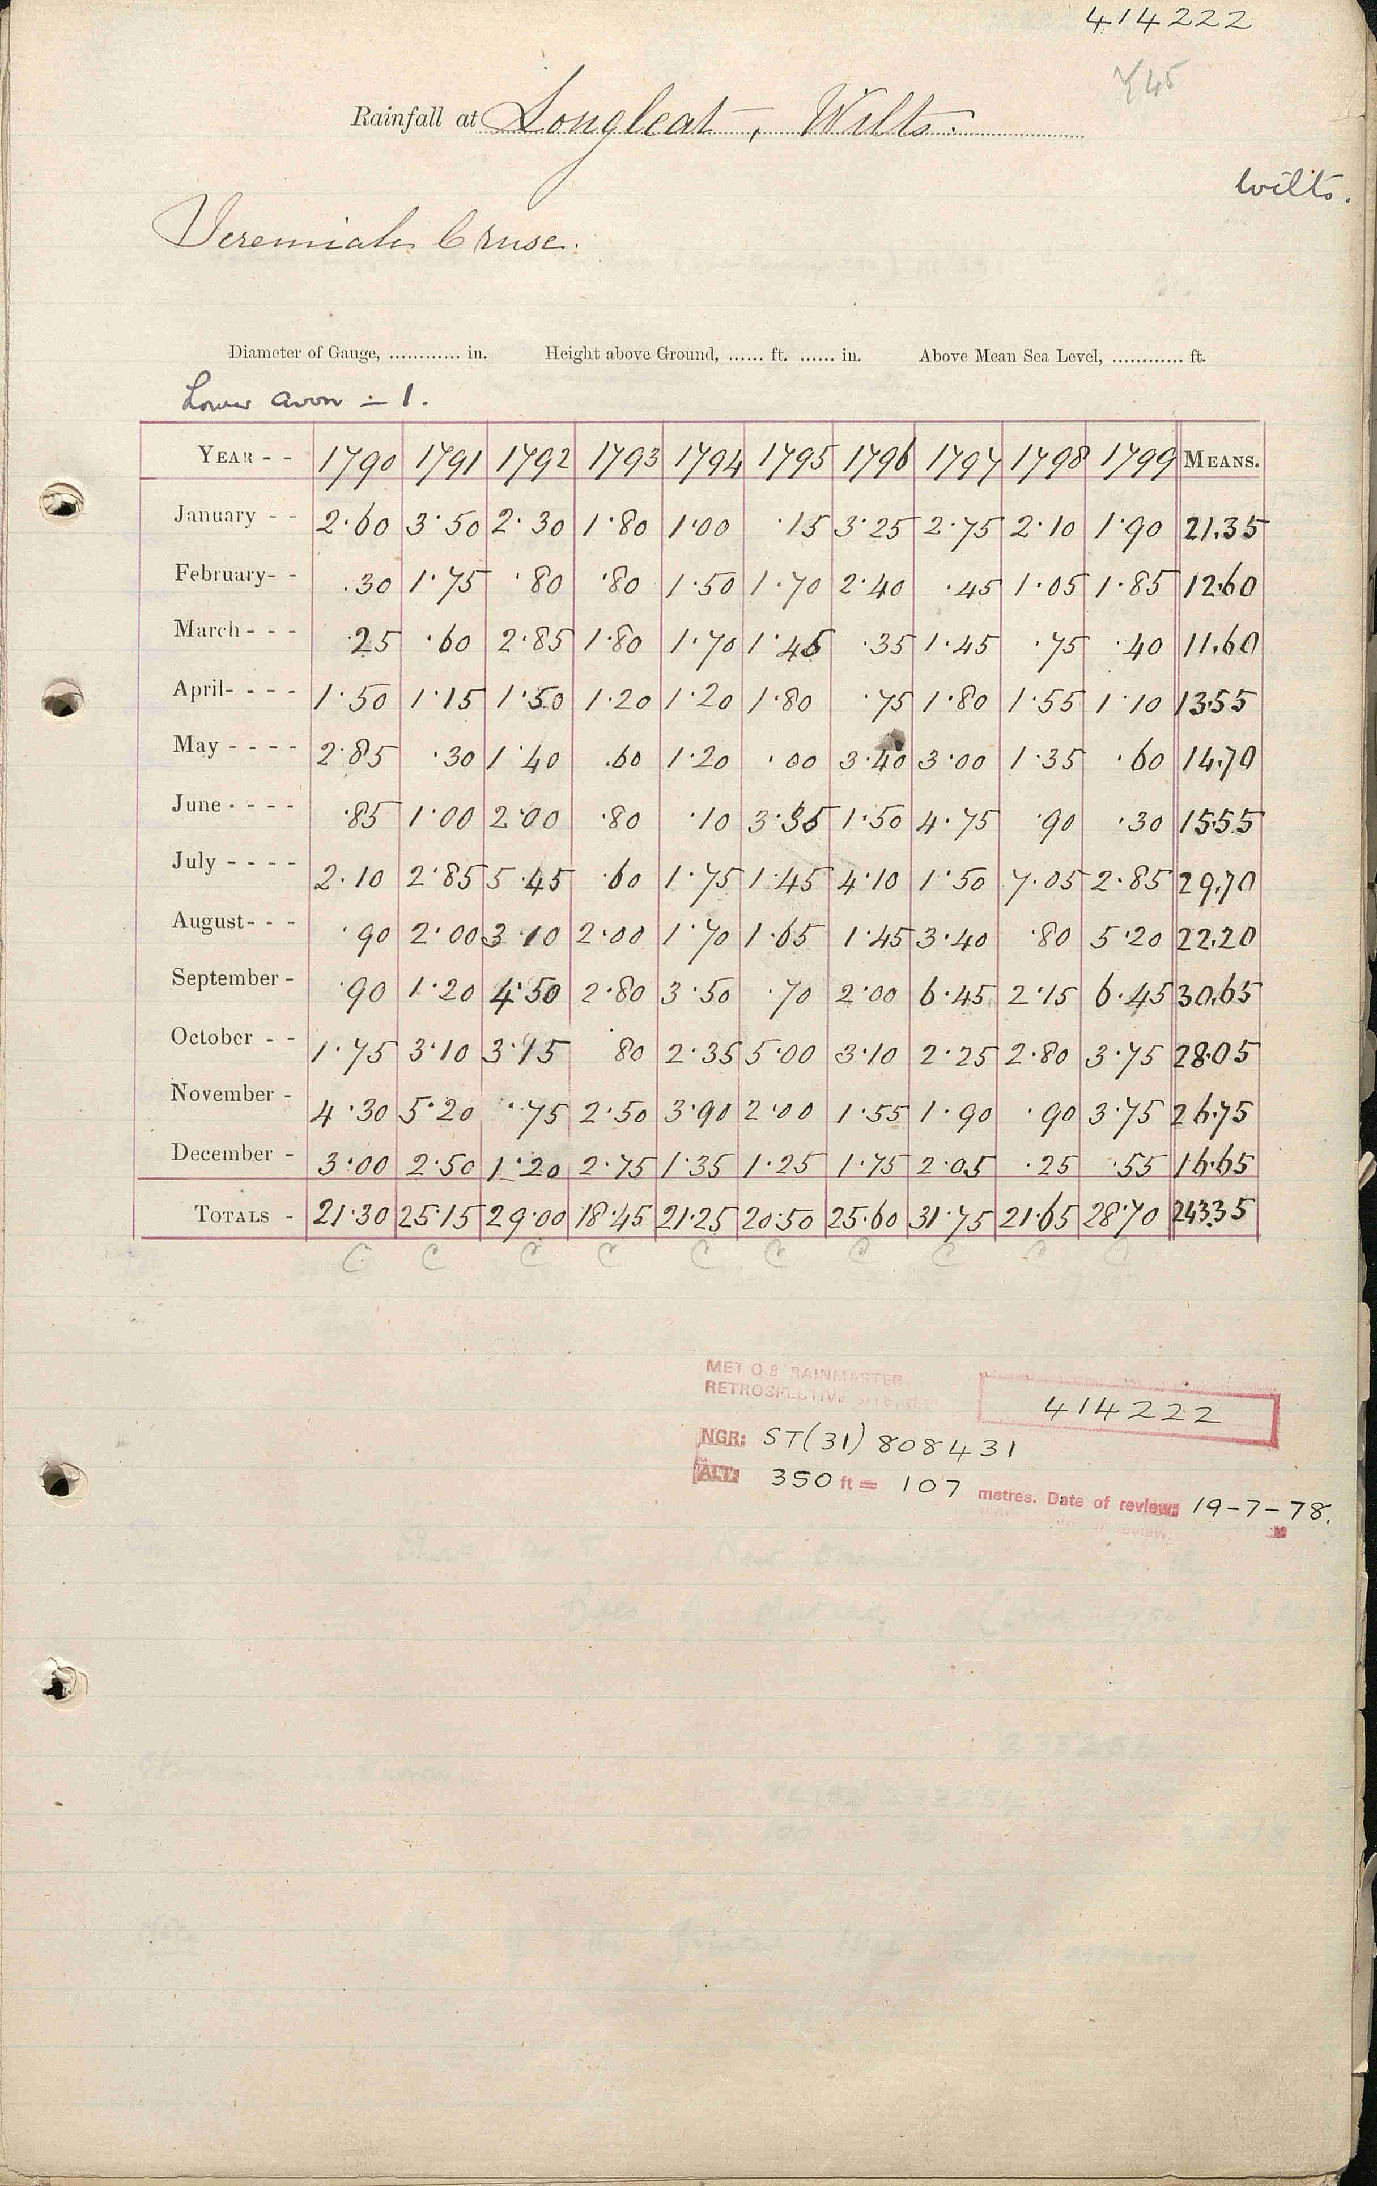 414222
Rainfall at Longleat, Wilts.
Wilts.
Jeremiah Cruse.
Diameter of Gauge, ............ in. Height above Ground, ...... ft. ...... in. Above Mean Sea Level, ............ ft.
Lower Avon - 1.
YEAR - - 1790 1791 1792 1793 1794 1795 1796 1797 1798 1799 MEANS.
January - - 2.60 3.50 2.30 1.80 1.00 .15 3.25 2.75 2.10 1.90 21.35
February - - .30 1.75 .80 .80 1.50 1.70 2.40 .45 1.05 1.85 12.60
March - - - .25 .60 2.85 1.80 1.70 1.45 .35 1.45 .75 .40 11.60
April - - - - 1.50 1.15 1.50 1.20 1.20 1.80 .75 1.80 1.55 1.10 13.55
May - - - - 2.85 .30 1.40 .60 1.20 .00 3.40 3.00 1.35 .60 14.70
June - - - - .85 1.00 2.00 .80 .10 3.35 1.50 4.75 .90 .30 15.55
July - - - - 2.10 2.85 5.45 .60 1.75 1.45 4.10 1.50 7.05 2.85 29.70
August - - - .90 2.00 3.10 2.00 1.70 1.65 1.45 3.40 .80 5.20 22.20
September - .90 1.20 4.50 2.80 3.50 .70 2.00 6.45 2.15 6.45 30.65
October - - 1.75 3.10 3.15 .80 2.35 5.00 3.10 2.25 2.80 3.75 28.05
November - 4.30 5.20 .75 2.50 3.90 2.00 1.55 1.90 .90 3.75 26.75
December - 3.00 2.50 1.20 2.75 1.35 1.25 1.75 2.05 .25 .55 16.65
TOTALS - 21.30 25.15 29.00 18.45 21.25 20.50 25.60 31.75 21.65 28.70 243.35
C C C C C C C C C C
MET O.8 RAINMASTER
RETROSPECTIVE
414222
NGR: ST(31) 808431
ALT: 350 ft = 107 metres. Date of review: 19-7-78.